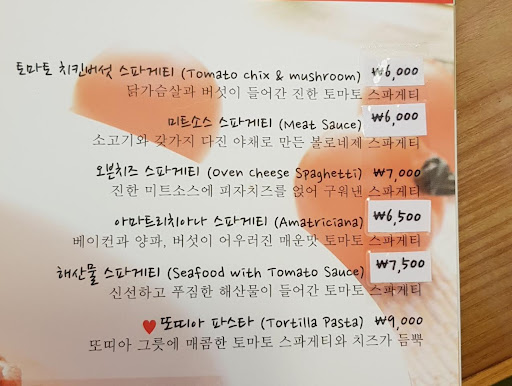 토마토 치킨버섯 스파게티 (Tomato chix & mushroom) ₩6,000
닭가슴살과 버섯이 들어간 진한 토마토 스파게티
미트소스 스파게티 (Meat Sauce) ₩6,000
소고기와 갖가지 다진 야채로 만든 볼로네제 스파게티
오븐치즈 스파게티 (Oven cheese Spaghetti) ₩7,000
진한 미트소스에 피자치즈를 얹어 구워낸 스파게티
아마트리치아나 스파게티 (Amatriciana) ₩6,500
베이컨과 양파, 버섯이 어우러진 매운맛 토마토 스파게티
해산물 스파게티 (Seafood with Tomato Sauce) ₩7,500
신선하고 푸짐한 해산물이 들어간 토마토 스파게티
♥또띠아 파스타 (Tortilla Pasta) ₩9,000
또띠아 그릇에 매콤한 토마토 스파게티와 치즈가 듬뿍